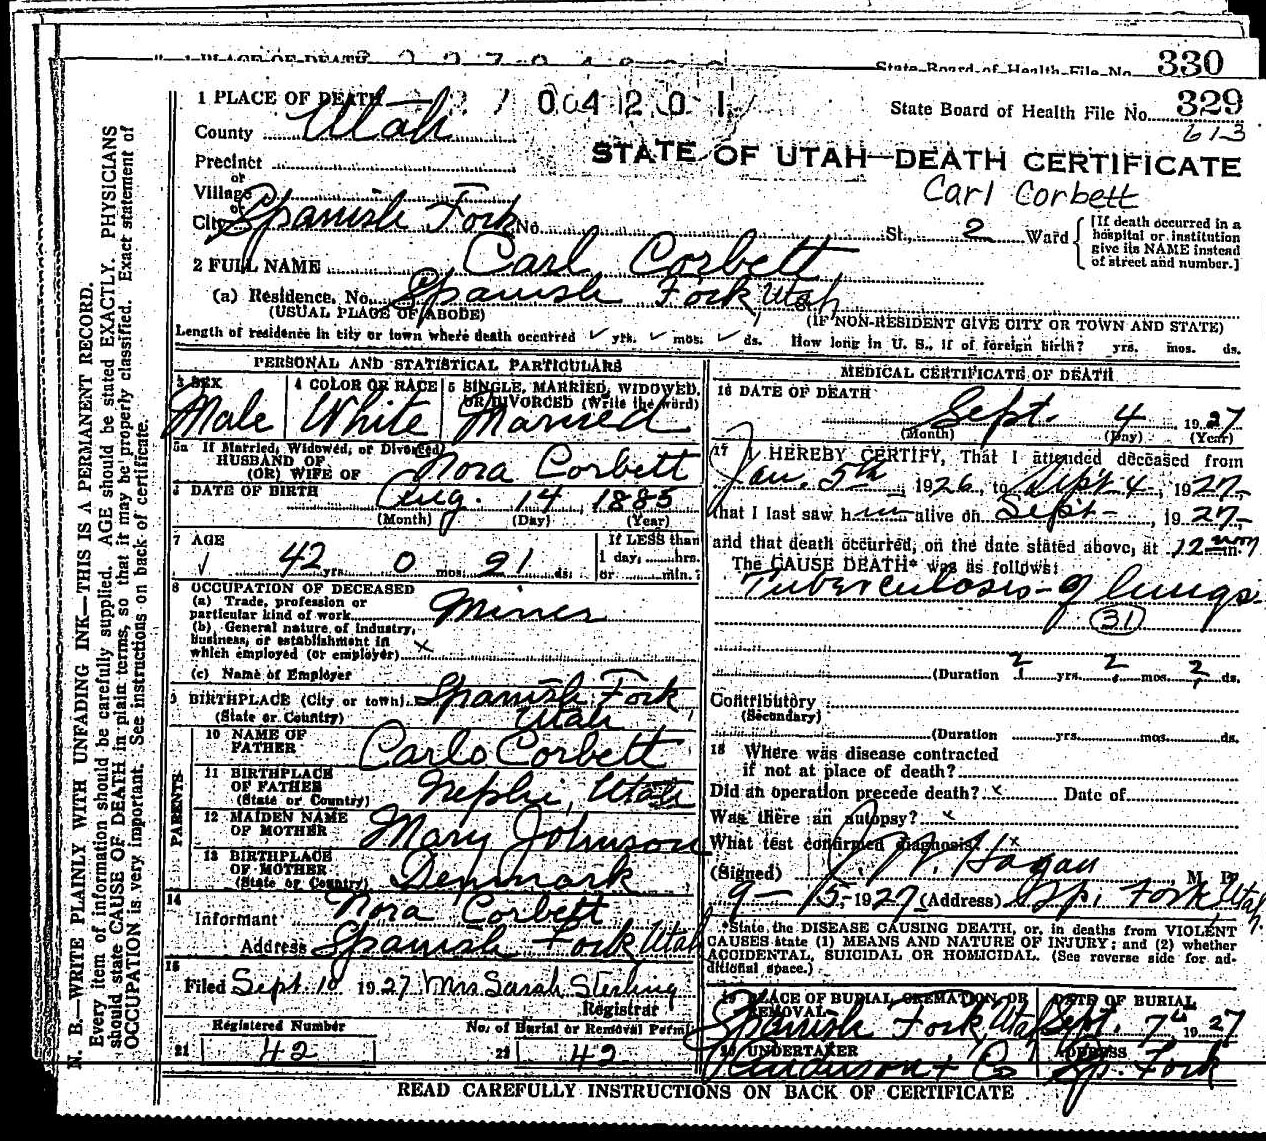 330
1 PLACE OF DEATH
State Board of Health File No. 329
613
County Utah
STATE OF UTAH—DEATH CERTIFICATE
Carl Corbett
Precinct
or
Village
or
City Spanish Fork No. St., 2 Ward
[If death occurred in a
hospital or institution
give its NAME instead
of street and number.]
2 FULL NAME Carl Corbett
(a) Residence. No. Spanish Fork, Utah
(USUAL PLACE OF ABODE) (IF NON-RESIDENT GIVE CITY OR TOWN AND STATE)
Length of residence in city or town where death occurred ✓ yrs. ✓ mos. ✓ ds. How long in U. S., if of foreign birth? yrs. mos. ds.
PERSONAL AND STATISTICAL PARTICULARS
3 SEX Male
4 COLOR OR RACE White
5 SINGLE, MARRIED, WIDOWED,
OR DIVORCED (Write the word) Married
5a If Married, Widowed, or Divorced
HUSBAND OF
(OR) WIFE OF Nora Corbett
6 DATE OF BIRTH Aug. 14, 1885
(Month) (Day) (Year)
7 AGE 42 yrs. 0 mos. 21 ds.
If LESS than
1 day, hrs.
or min.
8 OCCUPATION OF DECEASED
(a) Trade, profession or
particular kind of work Miner
(b) General nature of industry,
business, or establishment in
which employed (or employer) x
(c) Name of Employer
9 BIRTHPLACE (City or town) Spanish Fork,
(State or Country) Utah
PARENTS
10 NAME OF
FATHER Carlo Corbett
11 BIRTHPLACE
OF FATHER
(State or Country) Nephi, Utah
12 MAIDEN NAME
OF MOTHER Mary Johnson
13 BIRTHPLACE
OF MOTHER
(State or Country) Denmark
14
Informant Nora Corbett
Address Spanish Fork, Utah
15
Filed Sept. 10 1927 Mrs Sarah Sterling
Registrar
Registered Number No. of Burial or Removal Permit
21 42 22 42
MEDICAL CERTIFICATE OF DEATH
16 DATE OF DEATH
Sept. 4 1927
(Month) (Day) (Year)
17 I HEREBY CERTIFY, That I attended deceased from
Jan. 5th, 1926, to Sept 4, 1927,
that I last saw him alive on Sept -, 1927,
and that death occurred, on the date stated above, at 12 noon m.
The CAUSE DEATH* was as follows:
Tuberculosis - of lungs
(31)
(Duration 2 yrs. 2 mos. 2 ds.
Contributory
(Secondary)
(Duration yrs. mos. ds.
18 Where was disease contracted
if not at place of death?
Did an operation precede death? x Date of
Was there an autopsy? x
What test confirmed diagnosis? x
(Signed) J. W. Hagan, M. D.
9-15-1927 (Address) Sp. Fork, Utah.
*State the DISEASE CAUSING DEATH, or, in deaths from VIOLENT
CAUSES state (1) MEANS AND NATURE OF INJURY; and (2) whether
ACCIDENTAL, SUICIDAL OR HOMICIDAL. (See reverse side for ad-
ditional space.)
19 PLACE OF BURIAL, CREMATION, OR
REMOVAL Spanish Fork, Utah
DATE OF BURIAL
Sept. 7th 1927
20 UNDERTAKER
Anderson + Co
ADDRESS
Sp. Fork
READ CAREFULLY INSTRUCTIONS ON BACK OF CERTIFICATE
N. B.—WRITE PLAINLY WITH UNFADING INK—THIS IS A PERMANENT RECORD.
Every item of information should be carefully supplied. AGE should be stated EXACTLY. PHYSICIANS
should state CAUSE OF DEATH in plain terms, so that it may be properly classified. Exact statement of
OCCUPATION is very important. See instructions on back of certificate.